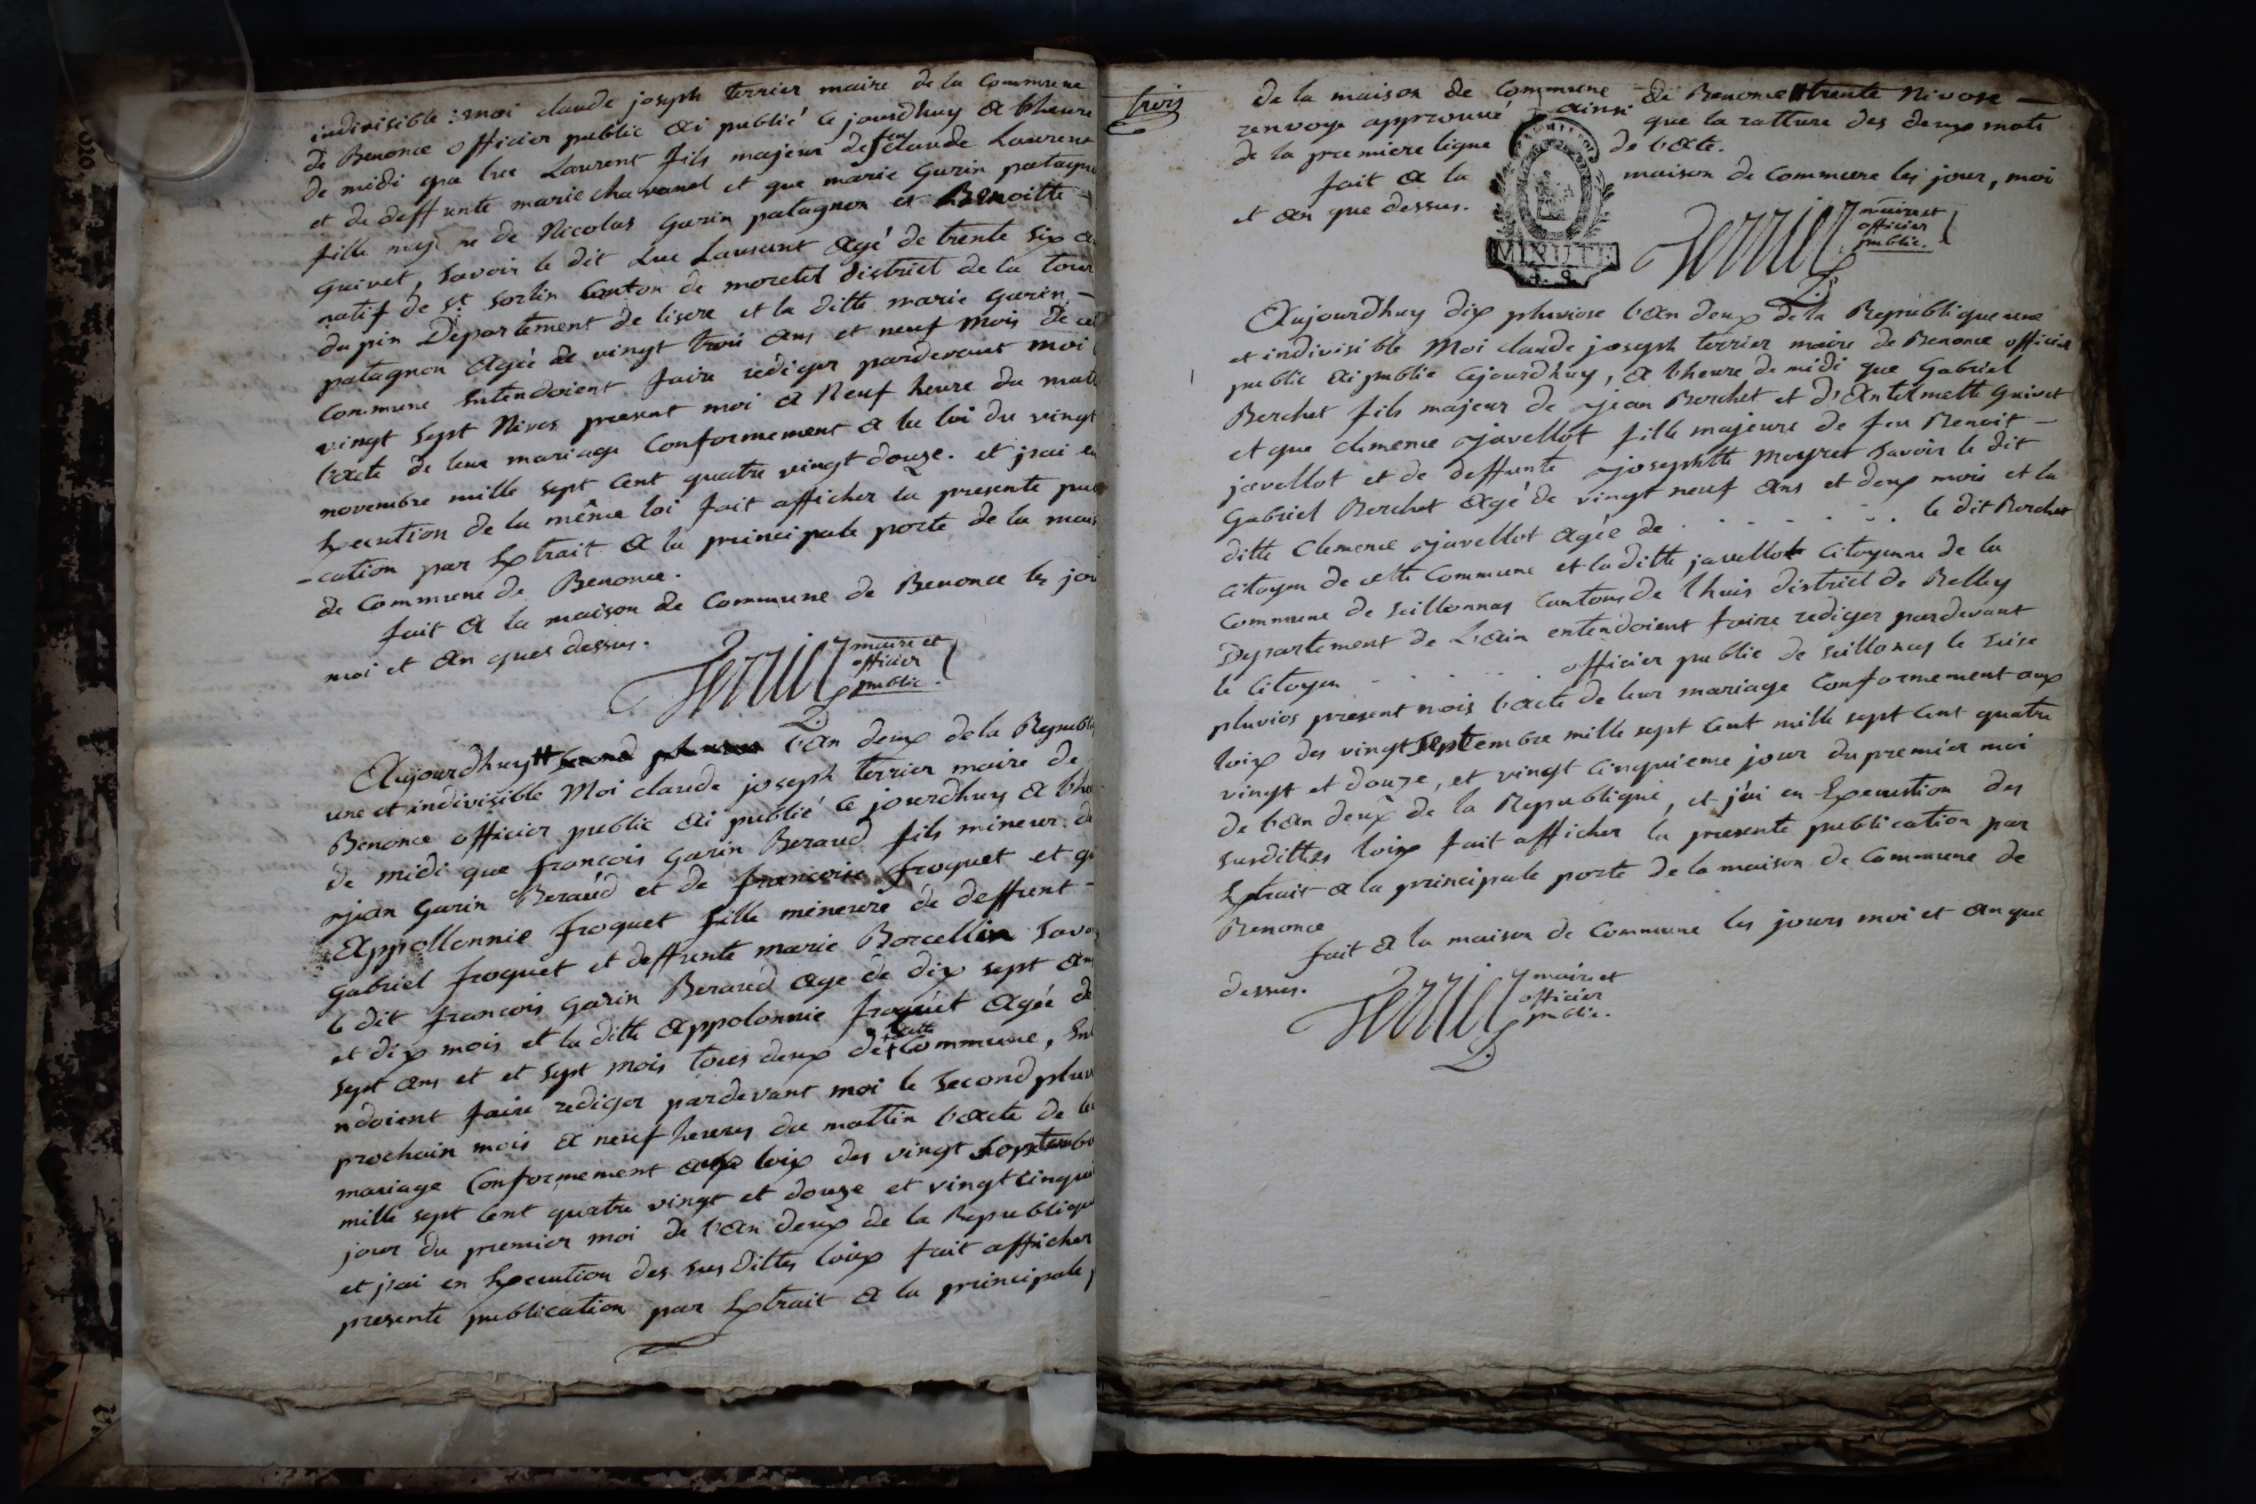 indivisible : moi claude joseph terrier maire de la Commune
de Benonce officier public ai publié ce jourdhuy a lheure
de midi que luc Laurent fils majeur de feu claude Laurent
et de deffunte marie chavanel et que marie Garin patagnon
fille maj de Nicolas Garin patagnon et Benoitte
Guivet, savoir le dit Luc Laurent agé de trente six
natif de St Sorlin Canton de moretel district de la tour
du pin Departement de lisere et la ditte marie Garin
patagnon agée de vingt trois ans et neuf mois de
Commune Entendoient faire rediger pardevant moi
vingt sept Nivos present moi a Neuf heure du
l'acte de leur mariage Conformement a la loi du vingt
novembre mille sept Cent quatre vingt douze. et j'ai en
Execution de la même loi fait afficher la presente pu
-cation par Extrait a la principale porte de la
de Commune de Benonce.
fait a la maison de Commune de Benonce les
moi et an ques dessus.
Terrier maire et
officier
public.
Aujourdhuy second l'an deux de la
une et indivisible Moi claude joseph terrier maire de
Benonce officier public ai publié ce jourdhuy a
de midi que francois Garin Beraud fils mineur de
jean Garin Beraud et de francoise froquet et
Appollonnie froquet fille mineure de deffunt -
Gabriel froquet et deffunte marie Borcellin
le dit francois Garin Beraud agé de dix sept
et dix mois et la ditte Appolonnie froquet agée
sept ans et et sept mois tous deux de cette Commune,
ndoient faire rediger pardevant moi le second
prochain mois a neuf heures du mattin l'acte de
mariage Conformement aux loix des vingt
mille sept Cent quatre vingt et douze et vingt
jour du premier moi de l'an deux de la
et j'ai en Execution des sus dittes loix fait afficher
presente publication par Extrait a la principale
trois
de la maison de Commune de Benonce # trente Nivose -
renvoye approuvé ainsi que la ratture des deux mots
de la premiere ligne de l'acte.
fait a la maison de Commune les jour, moi
et an que dessus.
MINUTE
Terrier maire et
officier
public.
Aujourdhuy dix pluviose l'an deux de la Republique une
et indivisible Moi claude joseph terrier maire de Benonce officier
public ai publié cejourdhuy, a lheure de midi que Gabriel
Berchet fils majeur de jean Berchet et d'Antelmette Guivet
et que Clemence javellot fille majeure de feu Benoit -
javellot et de deffunte josephtte Meyret savoir le dit
Gabriel Berchet agé de vingt neuf ans et deux mois et la
ditte Clemence javellot agée de . . . . . . . le dit Berchet
Citoyen de cette Commune et la ditte javellot Citoyenne de la
Commune de Seillonnas Cantons de lhuis district de Belley
Departement de L'ain entendoient faire rediger pardevant
le Citoyen . . . . . officier public de Seillonas le seise
pluvios present mois l'acte de leur mariage Conformement aux
loix des vingt septembre mille sept Cent mille sept Cent quatre
vingt et douze, et vingt Cinquieme jour du premier moi
de l'an deux de la Republique, et j'ai en Execution des
susdittes loix fait afficher la presente publication par
Extrait a la principale porte de la maison de Commune de
Benonce
fait a la maison de Commune les jours moi et an que
dessus.
Terrier maire et
officier
public.